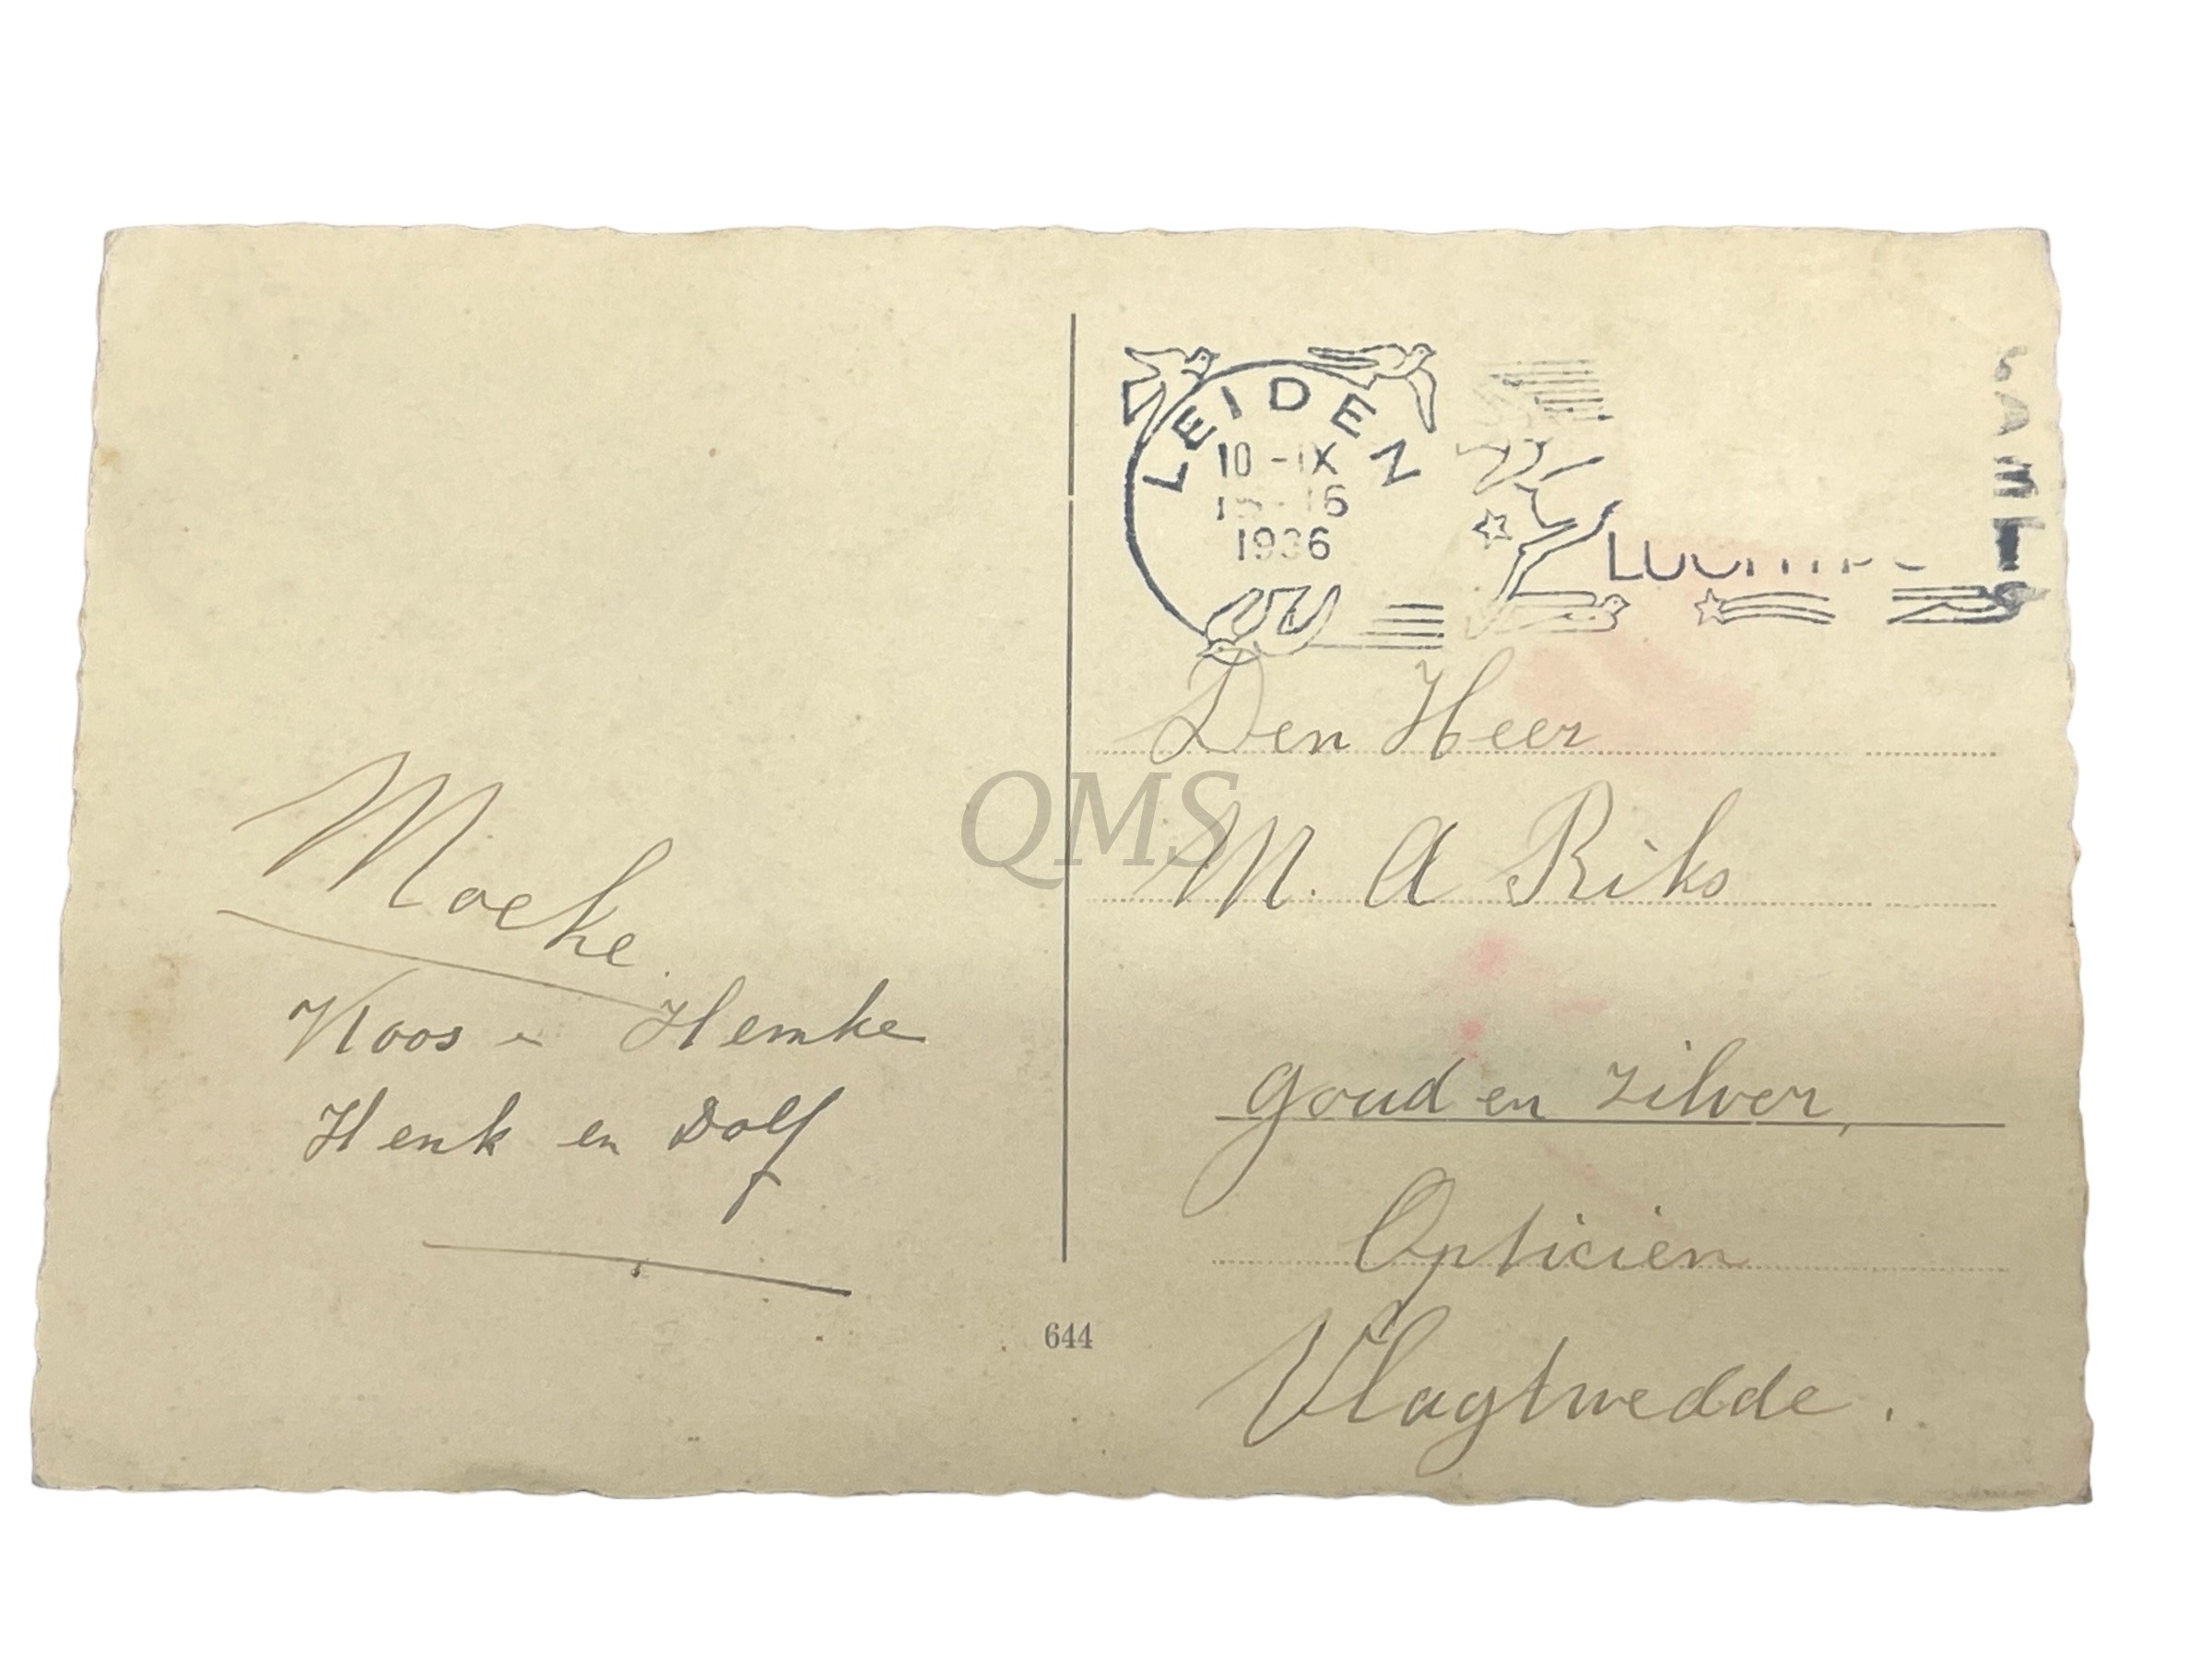 LEIDEN
10 -IX
1936
Den Heer
M. A Riks
goud en zilver,
Opticien
Vlagtwedde.
Moeke.
Koos en Hemke
Henk en Dolf
644
QMS